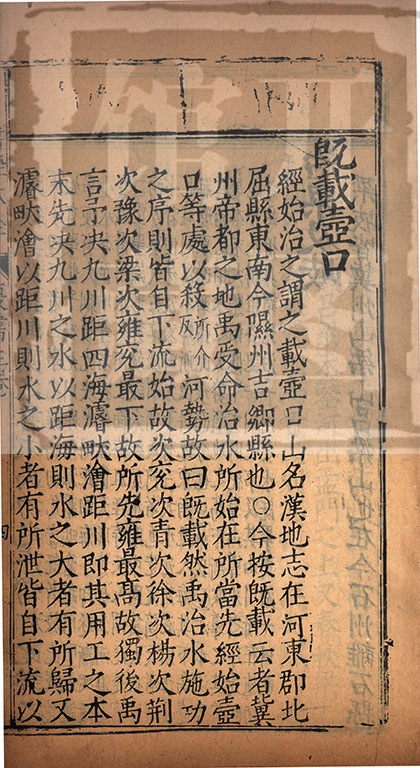 既載壺口
經始治之謂之載壺口山名漢地志在河東郡北
屈縣東南今隰州吉鄉縣也○今按既載云者冀
州帝都之地禹受命治水所始在所當先經始壺
口等處以殺所介反河勢故曰既載然禹治水施功
之序則皆自下流始故次兗次青次徐次楊次荆
次豫次梁次雍兗最下故所先雍最高故獨後禹
言予决九川距四海濬畎澮距川即其用工之本
末先决九川之水以距海則水之大者有所歸又
濬畎澮以距川則水之小者有所泄皆自下流以